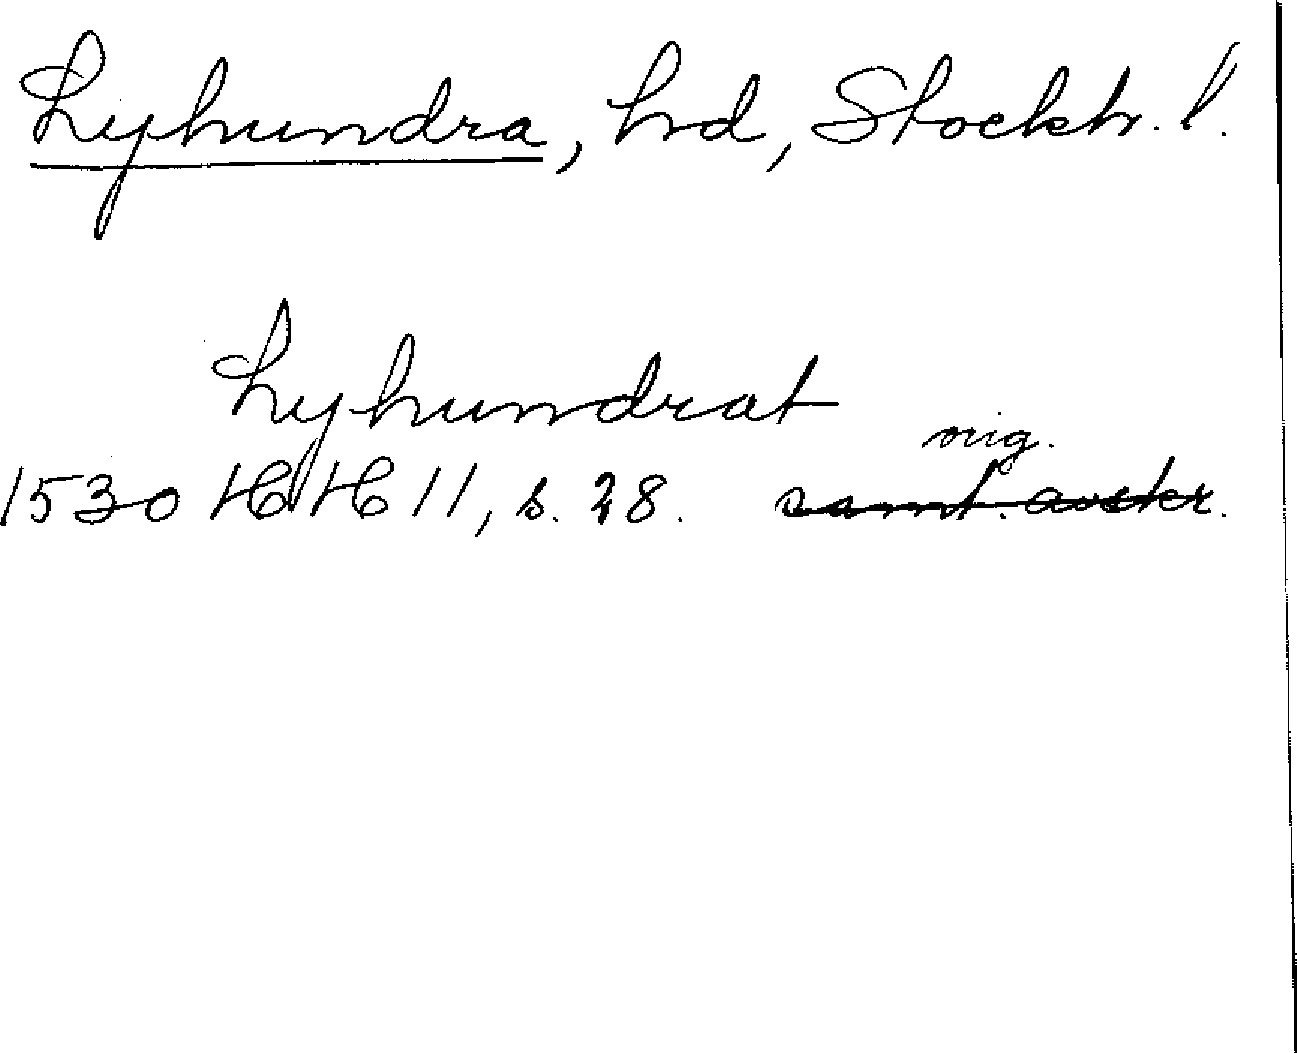 Lyhundra, hd, Stockh. l.
Lyhundrat
orig.
1530 HH 11, s. 28. samt. avskr.